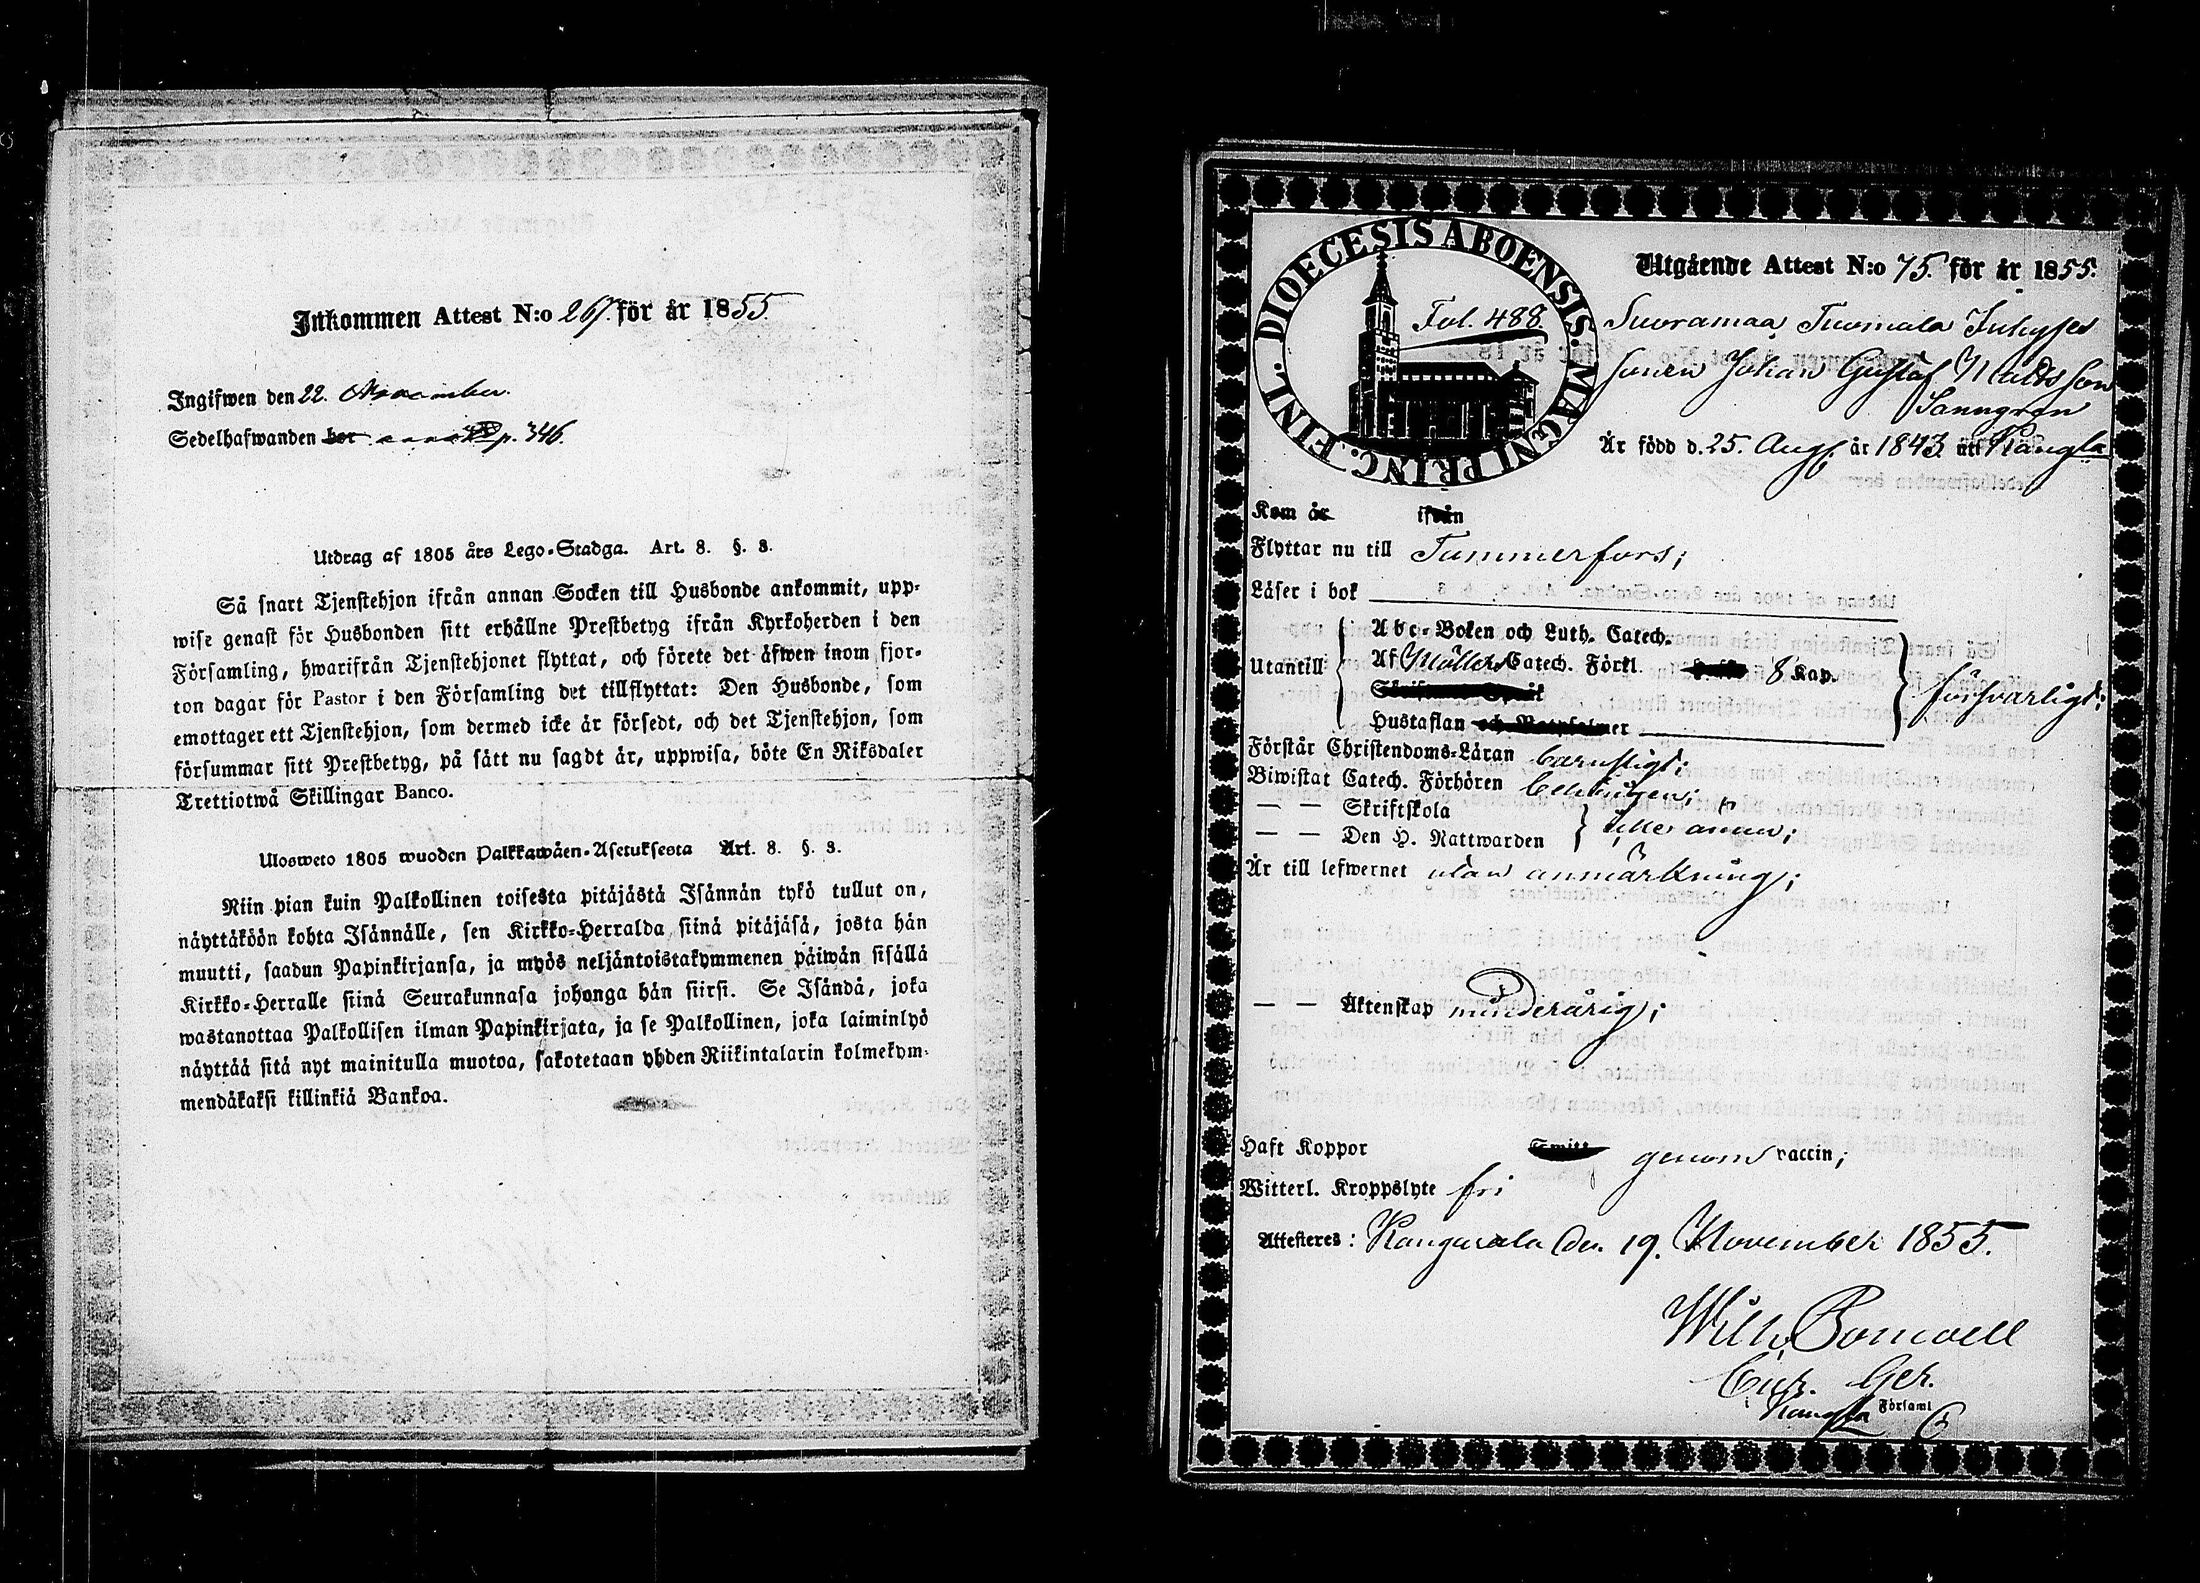 Inkommen Attest N:o 267. för år 1855
Ingifwen den 22. November.
Sedelhafwanden bor p. 346.
Utdrag af 1805 års Lego-Stadga. Art. 8. §. 3.
Så snart Tjenstehjon ifrån annan Socken till Husbonde ankommit, upp-
wise genast för Husbonden sitt erhållne Prestbetyg ifrån Kyrkoherden i den
Församling, hwarifrån Tjenstehjonet flyttat, och förete det äfwen inom fjor-
ton dagar för Pastor i den Församling det tillflyttat: Den Husbonde, som
emottager ett Tjenstehjon, som dermed icke är försedt, och det Tjenstehjon, som
försummar sitt Prestbetyg, på sätt nu sagdt är, uppwisa, böte En Riksdaler
Trettiotwå Skillingar Banco.
Ulosweto 1805 wuoden Palkkawäen-Asetuksesta Art. 8. §. 3.
Niin pian kuin Palkollinen toisesta pitäjästä Isännän tykö tullut on,
näyttäköön kohta Isännälle, sen Kirkko-Herralda siinä pitäjäsä, josta hän
muutti, saadun Papinkirjansa, ja myös neljäntoistakymmenen päiwän sisällä
Kirkko-Herralle siinä Seurakunnasa johonga hän siirsi. Se Isändä, joka
wastanottaa Palkollisen ilman Papinkirjata, ja se Palkollinen, joka laiminlyö
näyttää sitä nyt mainitulla muotoa, sakotetaan yhden Riikintalarin kolmekym-
mendäkaksi killinkiä Bankoa.
DIOECESIS ABOENSIS. MAGNI PRINC. FINL.
Fol. 488.
Utgående Attest N:o 75. för år 1855.
Suoramaa Tuomala Inhyses
sonen Johan Gustaf Mattsson
Sanngren
Är född d. 25. Aug. år 1843. uti Kangla
Kom år ifrån
Flyttar nu till Tammerfors;
Läser i bok
Utantill
Abc-Boken och Luth. Catech.
Af Möllers Catech. Förkl. 8 Kap.
Hustaflan
försvarligt:
Förstår Christendoms-Läran barnsligt;
Biwistat Catech. Förhören
— — Skriftskola
— — Den H. Nattwarden
eller ännu;
Är till lefwernet utan anmärkning;
— — Äktenskap minderårig;
Haft Koppor genom vaccin;
Witterl. Kroppslyte fri
Attesteres: Kangasala den 19. November 1855.
Wilh. Bonwell
Kangla Församl